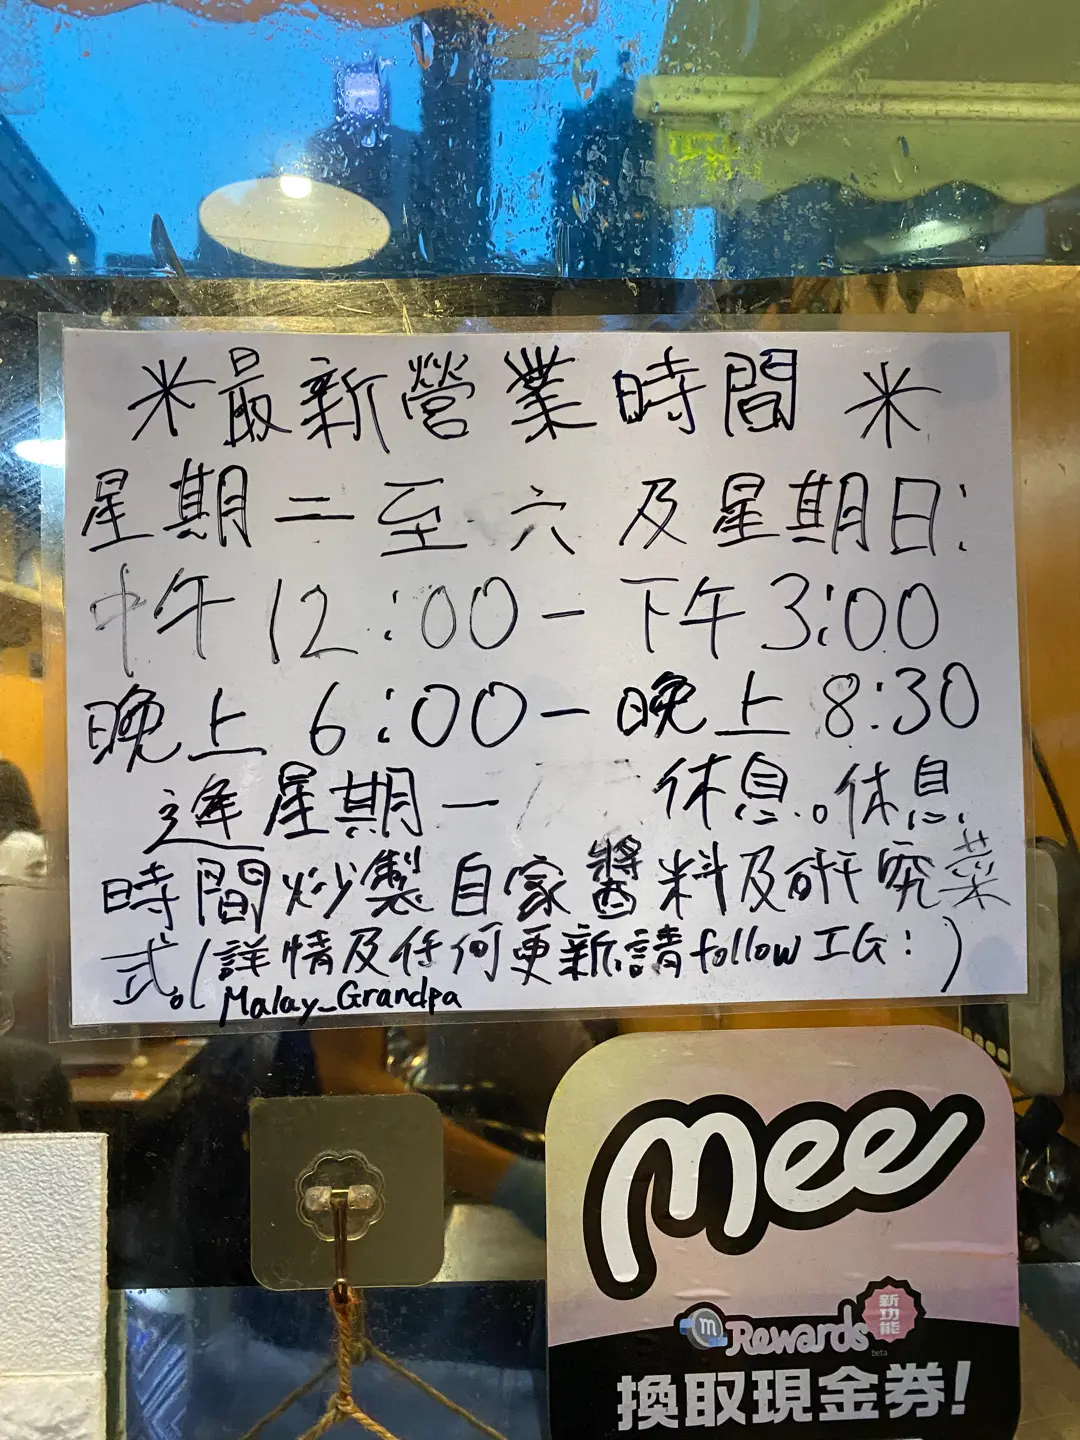 *最新營業時間*
星期二至六及星期日:
中午12:00-下午3:00
晚上6:00-晚上8:30
逢星期一 休息。休息
時間炒製自家醬料及研究菜
式。(詳情及任何更新請follow IG: )
Malay_Grandpa
mee
m Rewards 新功能
beta
換取現金券!